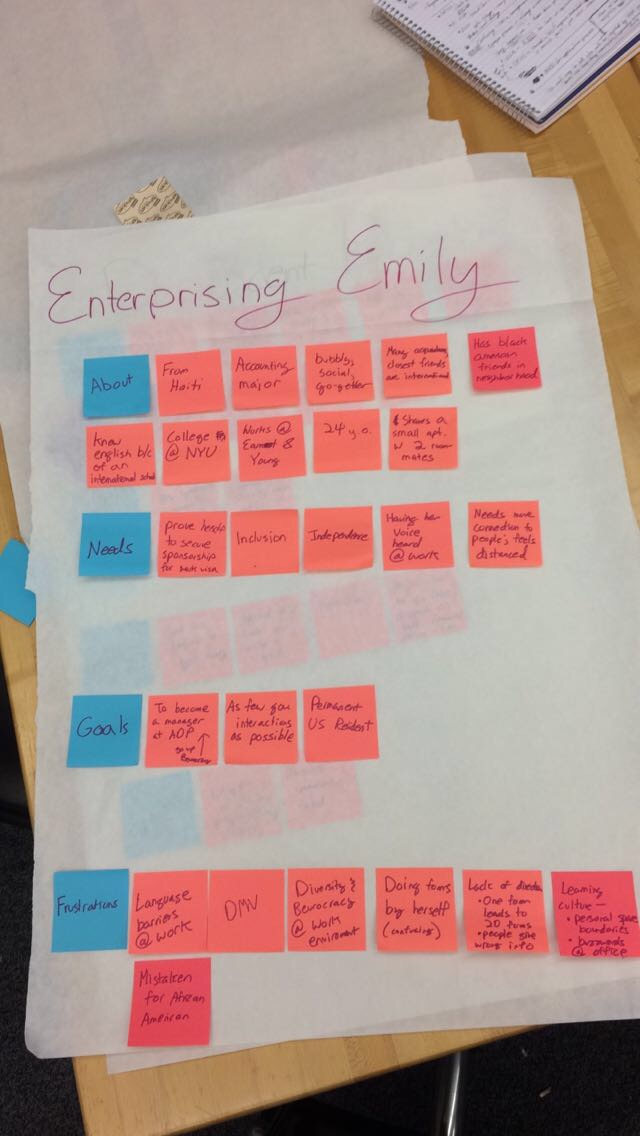 Enterprising Emily
About
From
Haiti
Accounting
major
bubbly,
social,
go-getter
Many
closest friends
are international
Has black
american
friends in
neighborhood
Know
english b/c
of an
international
College
@ NYU
Works @
&
Young
24 y.o.
Shares a
small apt.
w 2 room
mates
Needs
prove
to secure
sponsorship
for work visa
Inclusion
Independence
Having her
Voice
heard
@ work
Needs more
connection to
people, feels
distanced
Goals
To become
a manager
at ADP
go up
As few gov
interactions
as possible
Permanent
US Resident
Frustrations
Language
barriers
@ work
DMV
Diversity &
Beurocracy
@ work
Doing forms
by herself
(confusing)
Lack of
• One form
leads to
20 forms
• people give
wrong info
Learning
culture -
• personal space
boundaries
• buzzwords
@ office
Mistaken
for African
American